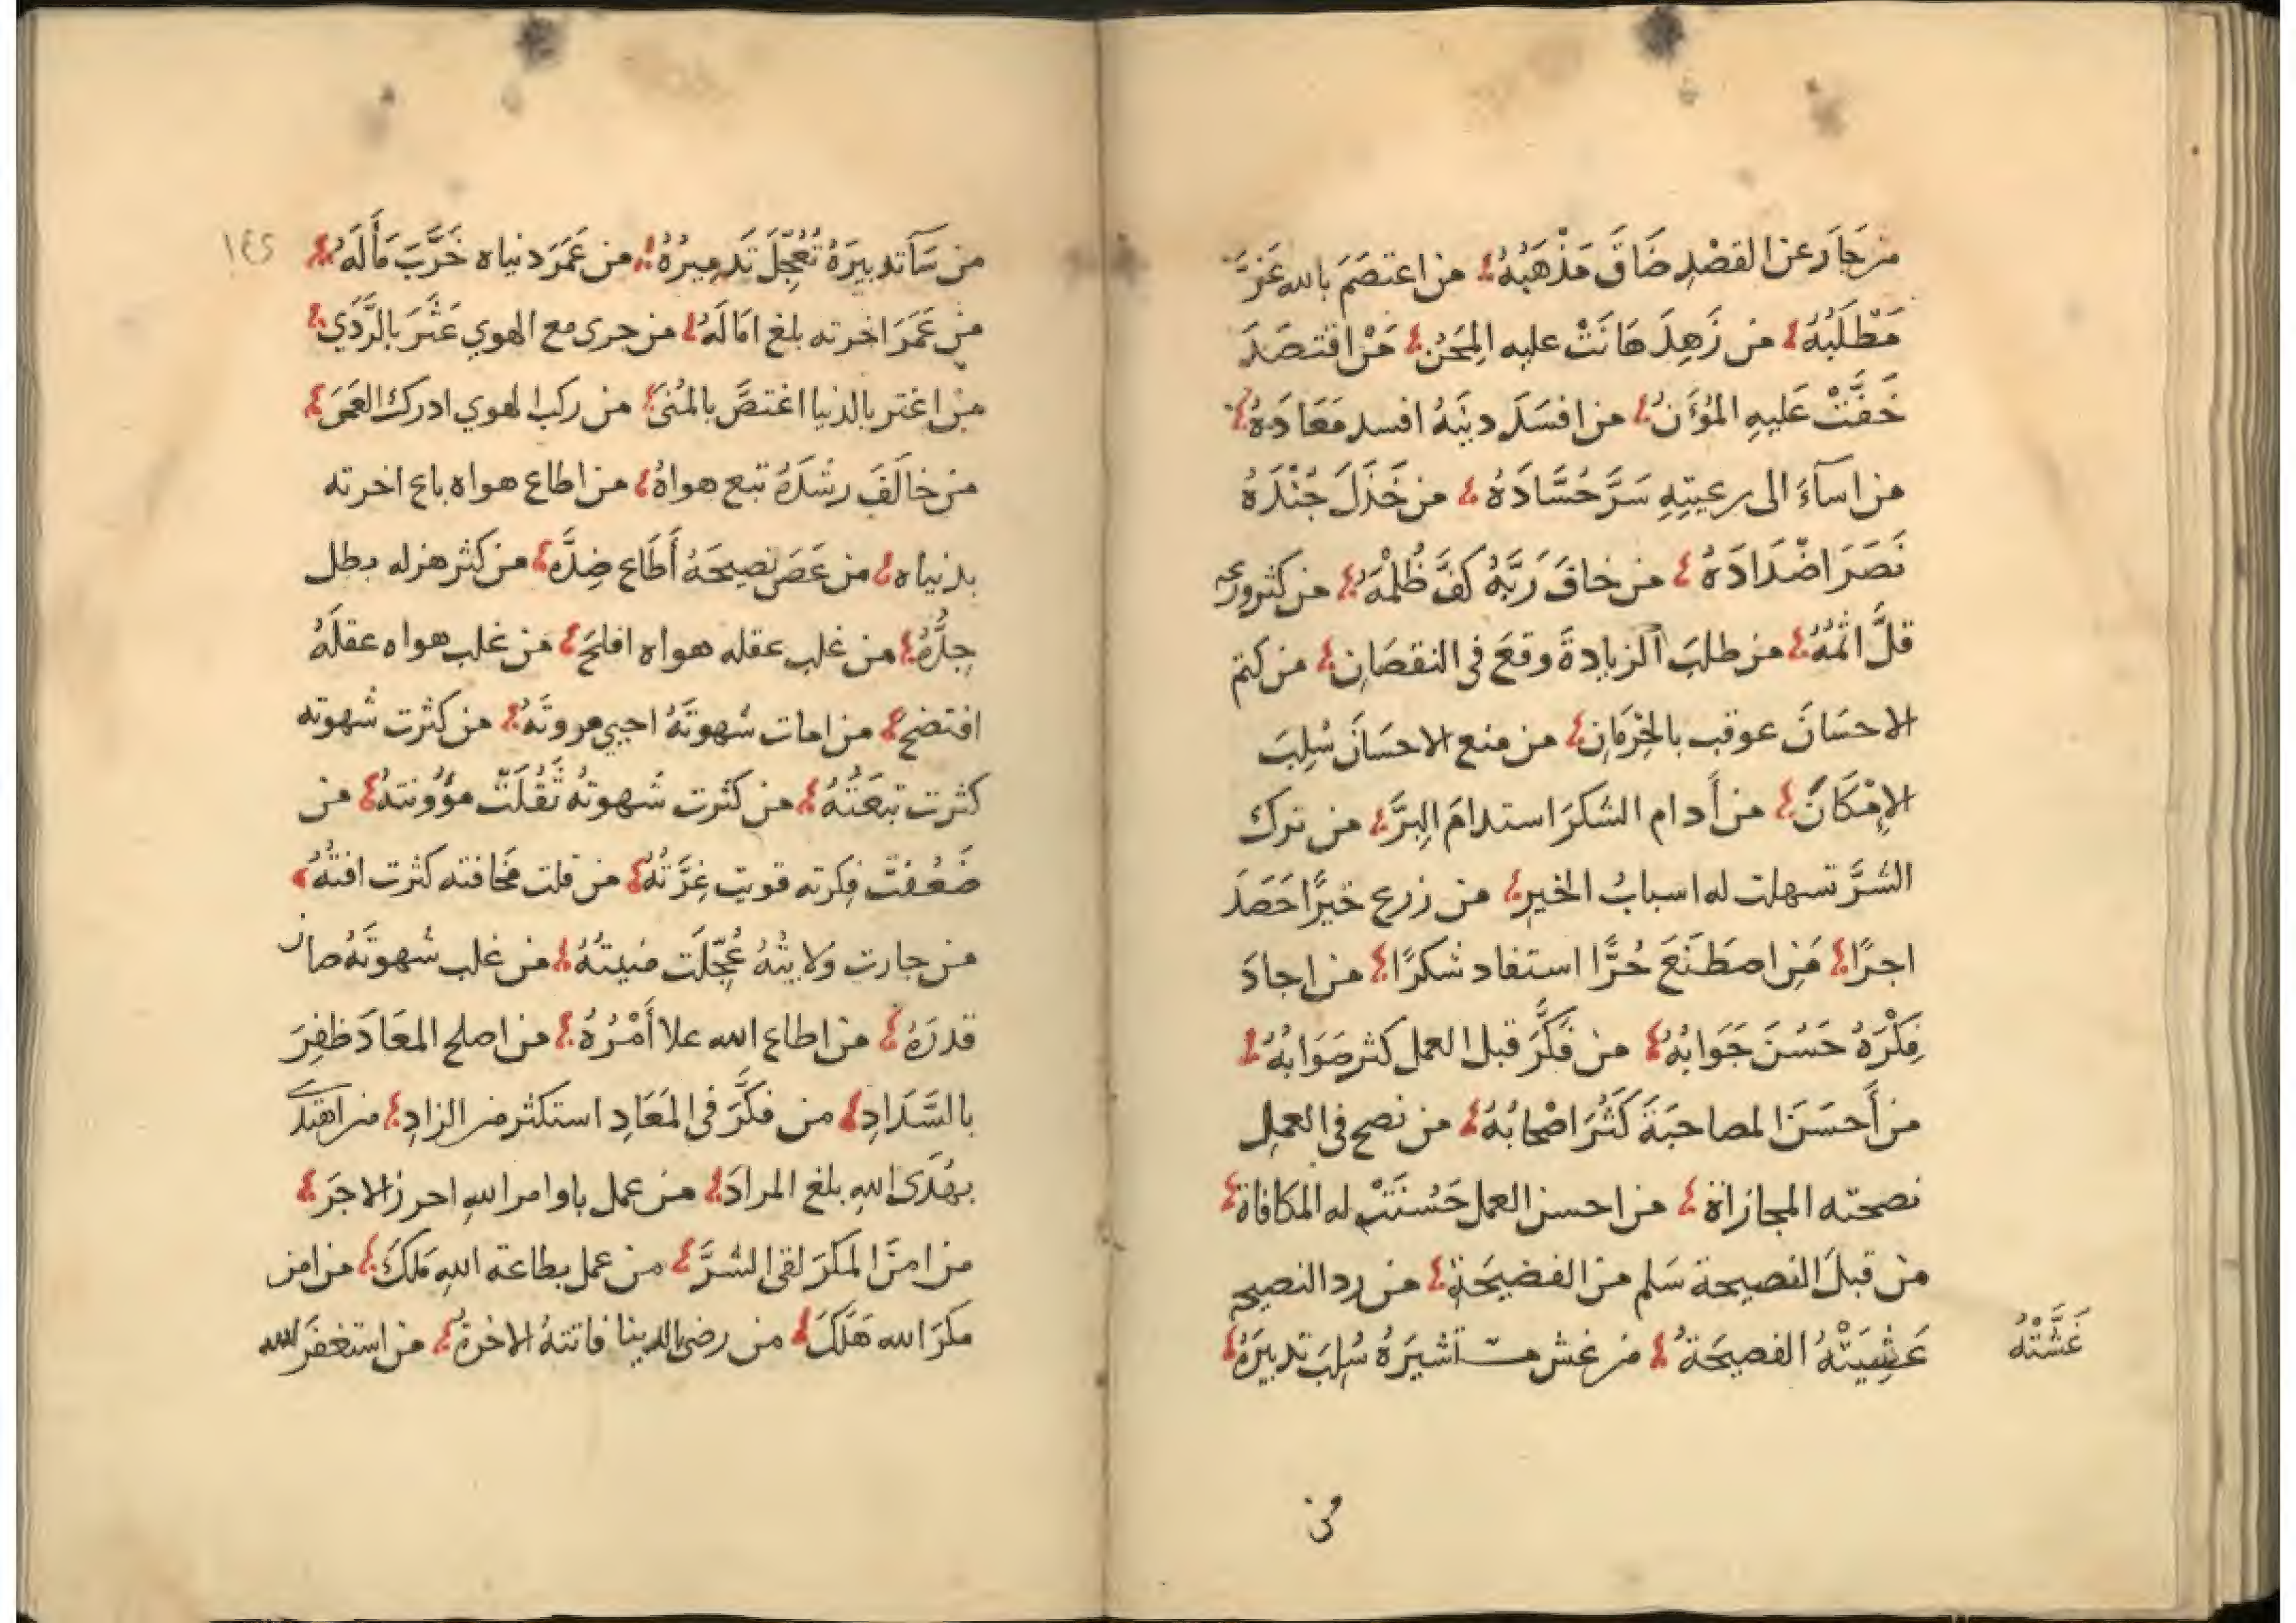 من جَارَ عن القصْدِ ضَاقَ مَذْهَبُهُ من اعتصَمَ بالله عَزَّ
مَطْلَبُهُ من زَهِدَ هَانَتْ عليه المِحَنُ مَنْ اقتصَدَ
خَفَّتْ عَليهِ المُؤَنُ من افسَدَ دينَهُ افسد مَعَادَهُ
من اسآءَ الى رعيتِهِ سَرَّ حُسَّادَهُ من خَذَلَ جُنْدَهُ
نَصَرَ اضْدَادَهُ من خافَ رَبَّهُ كفَّ ظُلْمَهُ من كثر ورعه
قلَّ اثمُهُ من طلبَ الزيادةَ وقعَ في النقصَانِ من كتم
الاحسَانَ عوقب بالحِرْمَانِ من منع الاحسَانَ سُلِبَ
الإمْكَانَ من أَدام الشكرَ استدامَ البِرَّ من ترك
الشرَّ تسهلت له اسبابُ الخيرِ من زرع خيرًا حَصَدَ
اجرًا مَنِ اصطَنَعَ حُرًّا استفاد شكرًا من اجادَ
فِكْرَهُ حَسُنَ جَوَابُهُ من فَكَّرَ قبل العمل كثر صَوَابُهُ
من أَحسَنَ المصاحبَةَ كَثُرَ اصْحابُهُ من نصح في العملِ
نصحته المجازاة من احسن العمل حَسُنَتْ له المكافاة
من قبلَ النصيحة سَلم من الفضيحَةِ من رد النصيحه
غَشِيَتْهُ الفضيحَةُ من غش مستشيرَهُ سُلِبَ تدبيرَهُ
غَشَّتْهُ
من
١٤٢
من سَآ تدبيرَهُ تُعُجِّلَ تَدميرُهُ من عَمَرَ دنياه خَرَّبَ مَألَهُ
من عَمَرَ اخرته بلغ امَالَهُ من جرى مع الهوي عَثَرَ بالرَّدَي
من اغتر بالدنيا اغتصَّ بالمُنىَ من ركب الهوي ادرك العمىَ
من خالَفَ رشدَهُ تبع هواهُ من اطاع هواه باع اخرته
بدنياه من عَصَى نصيحَهُ أَطَاع ضِدَّه من كثر هزله بطل
جِدُّهُ من غلب عقله هواه افلحَ من غلب هواه عقلَهُ
افتضح من امات شهوتَهُ احيي مروتَهُ من كثرت شهوته
كثرت تبعَتُهُ من كثرت شهوتهُ ثَقُلَتْ مؤُونتهُ من
ضَعُفتْ فِكرته قويت غِرَّتُهُ من قلت مخَافته كثرت افتُهُ
من جارت وَلايتُهُ عُجِّلَت منيتُهُ من غلب شهوتَهُ صان
قدرَهُ من اطاع الله علا أَمْرُهُ من اصلح المعَادَ ظفِرَ
بالسَّدَادِ من فكَّرَ في المَعَادِ استكثر من الزادِ من اهتدى
بهُدَى اللهِ بلغ المرادَ من عمل باوامر اللهِ احرز الاجرَ
من امنَ المكرَ لقى الشرَّ من عمل بطاعة اللهِ مَلَكَ من امن
مكرَ الله هَلَكَ من رضى الدينا فاتتهُ الاخرةُ من استغفرَ الله